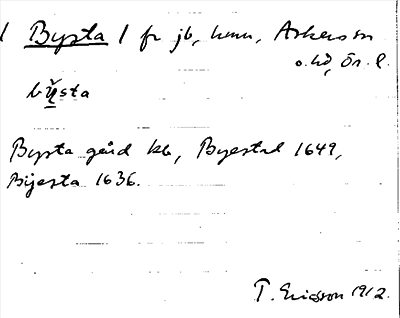 1 Bysta 1 fr jb, hmn, Askersm
o. hd, Ör. l.
bysta
Bysta gård kb, Byestad 1649,
Bijesta 1636.
T. Ericsson 1912.